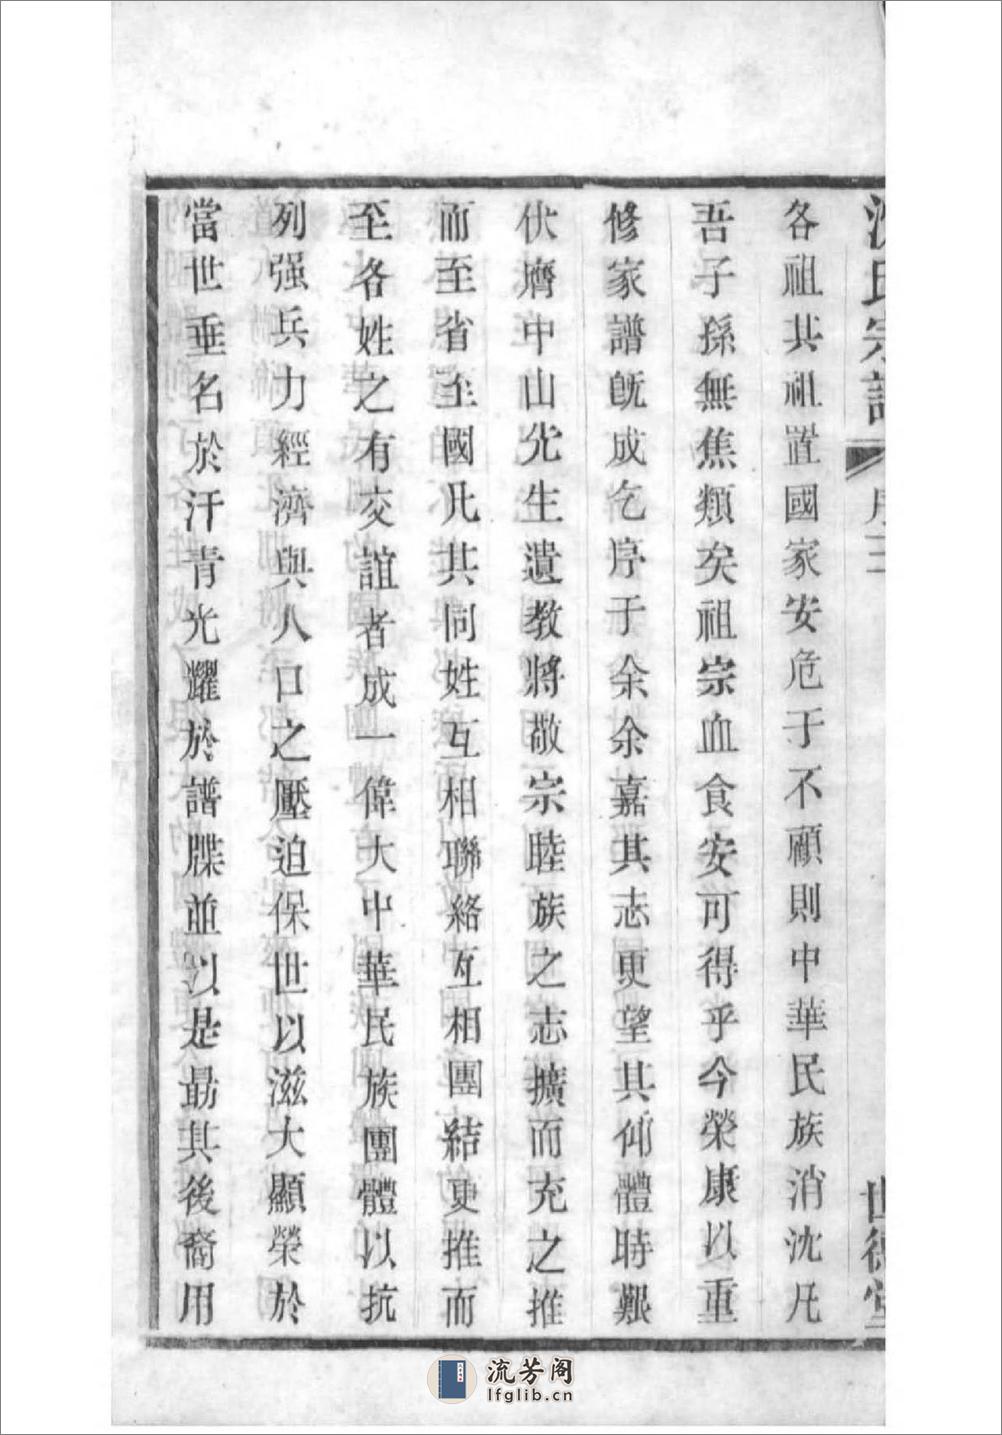 各祖其祖置國家安危于不顧則中華民族消沈凡
吾子孫無焦類矣祖宗血食安可得乎今榮康以重
修家譜旣成乞序于余余嘉其志更望其仰體時艱
伏膺中山先生遺教將敬宗睦族之志擴而充之推
而至省至國凡其同姓互相聯絡互相團結更推而
至各姓之有交誼者成一偉大中華民族團體以抗
列强兵力經濟與人口之壓迫保世以滋大顯榮於
當世垂名於汗青光耀於譜牒並以是勗其後裔用
流芳阁
lfglib.cn